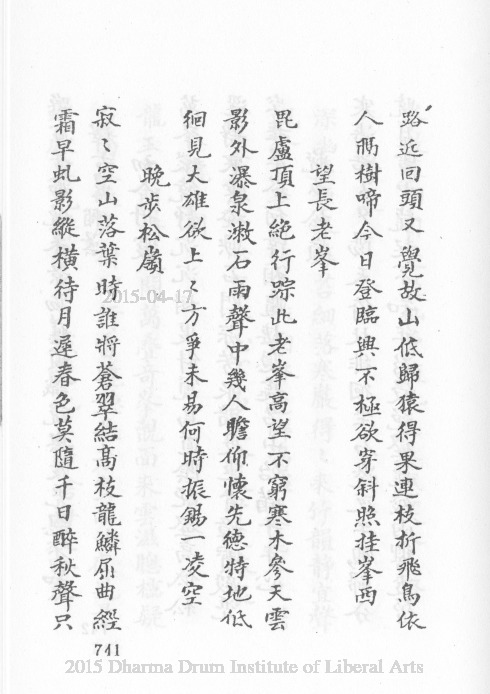 路近回頭又覺故山低歸猿得果連枝折飛鳥依
人隔樹啼今日登臨興不極欲穿斜照挂峯西
望長老峯
毘盧頂上絕行踪此老峯高望不窮寒木參天雲
影外瀑泉漱石雨聲中幾人瞻仰懷先德特地低
徊見大雄欲上〻方爭未易何時振錫一凌空
晚步松嶺
寂〻空山落葉時誰將蒼翠結高枝龍鱗屈曲經
霜早虬影縱橫待月遲春色莫隨千日醉秋聲只
741
2015-04-17
2015 Dharma Drum Institute of Liberal Arts